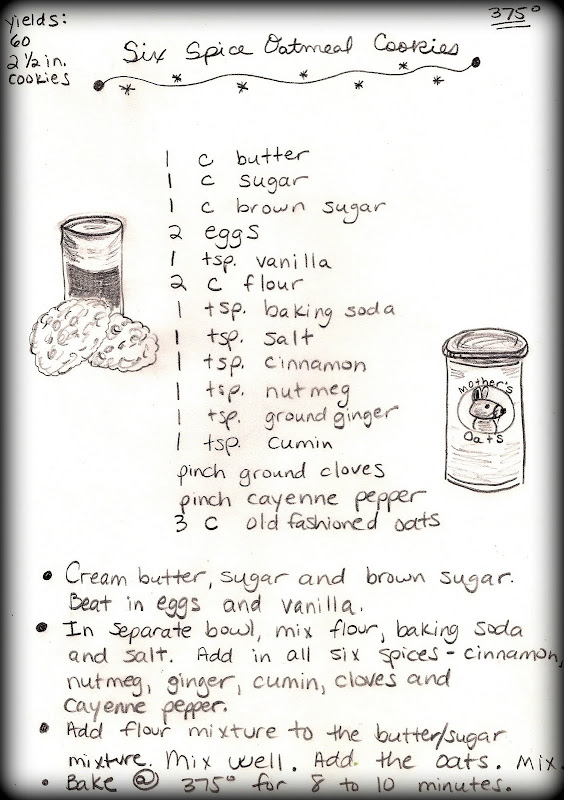 yields:
60
2 ½ in.
cookies
375°
Six Spice Oatmeal Cookies
1 c butter
1 c sugar
1 c brown sugar
2 eggs
1 tsp. vanilla
2 c flour
1 tsp. baking soda
1 tsp. salt
1 tsp. cinnamon
1 tsp. nutmeg
1 tsp. ground ginger
1 tsp. cumin
pinch ground cloves
pinch cayenne pepper
3 c old fashioned oats
mother's
Oats
• Cream butter, sugar and brown sugar.
Beat in eggs and vanilla.
• In separate bowl, mix flour, baking soda
and salt. Add in all six spices - cinnamon,
nutmeg, ginger, cumin, cloves and
cayenne pepper.
• Add flour mixture to the butter/sugar
mixture. Mix well. Add the oats. Mix.
• Bake @ 375° for 8 to 10 minutes.